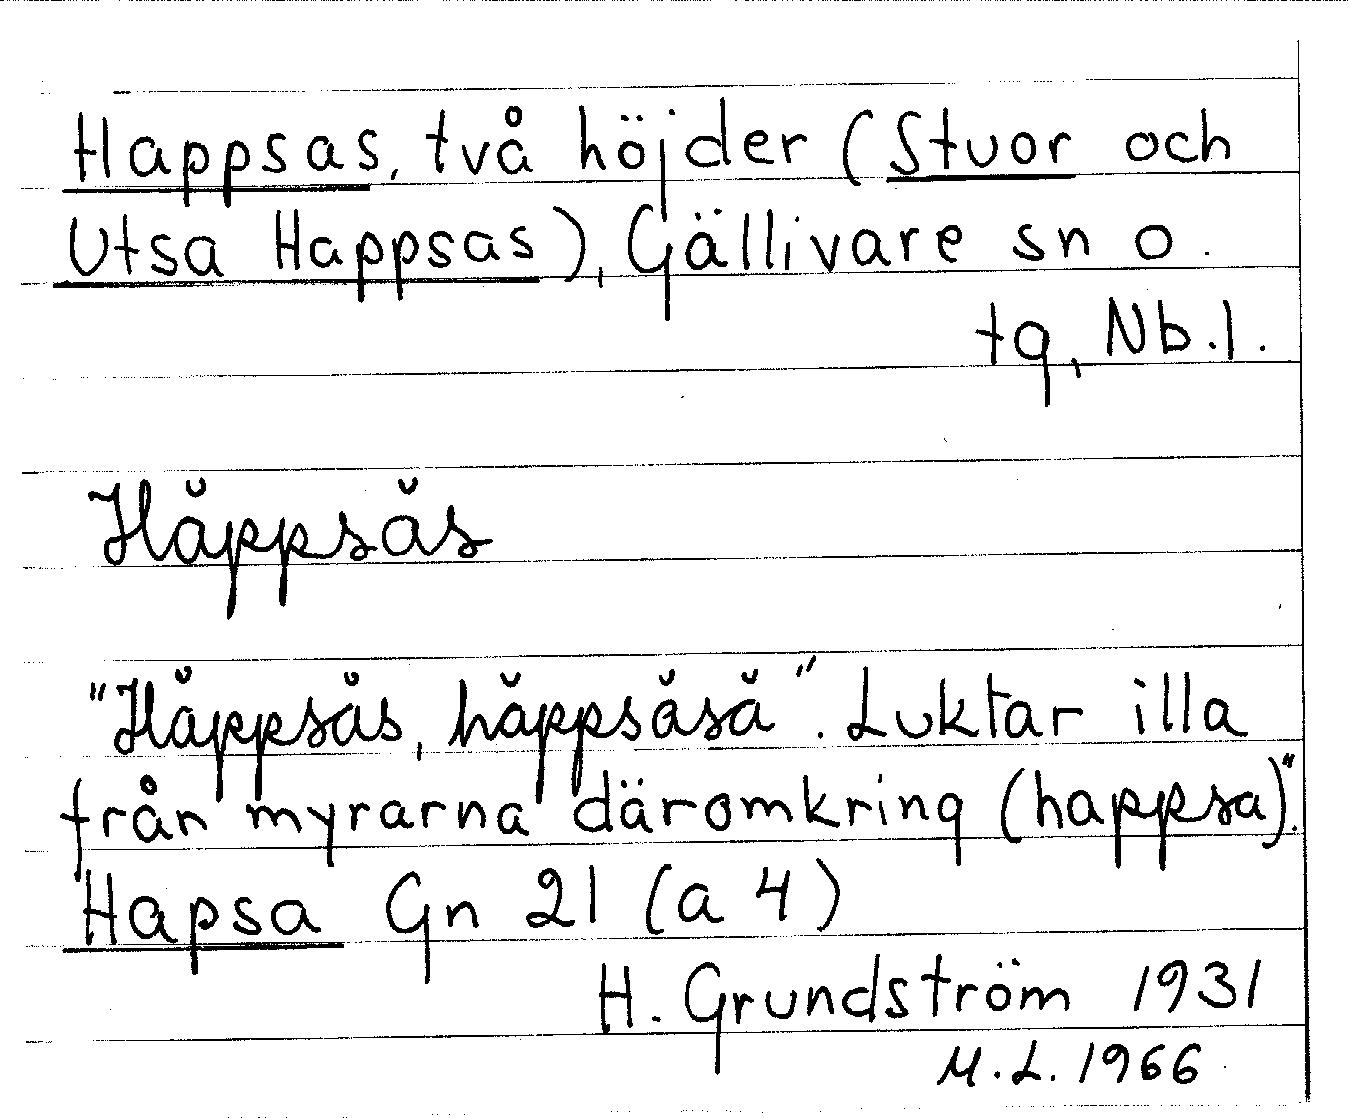 Happsas, två höjder (Stuor och
Utsa Happsas), Gällivare sn o.
tg, Nb.l.
Hăppsăs
"Hăppsăs, hăppsăsă". Luktar illa
från myrarna däromkring (happsa)".
Hapsa Gn 21 (a 4)
H. Grundström 1931
M.L. 1966